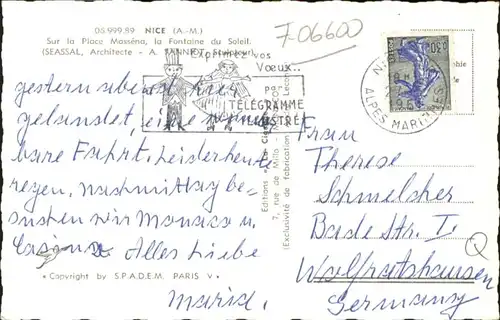 06.999.89 NICE (A.-M.)
Sur la Place Masséna, la Fontaine du Soleil.
(SEASSAL, Architecte - A. JANNIOT, Sculpteur).
7-06600
Exprimez vos
Vœux...
TÉLÉGRAMME
ILLUSTRÉ
NICE
ALPES MARITIMES
gestern abend hier
gelandet, eine wunder
bare Fahrt. Leider heute
regen, nachmittag be-
suchen wir Monaco u.
Casino. Alles Liebe
Maria.
7, rue de Millo
(Exclusivité de fabrication
Frau
Therese
Schmelcher
Bade Str. I
Wolfratshausen
Germany
° Copyright by S.P.A.D.E.M. PARIS V.